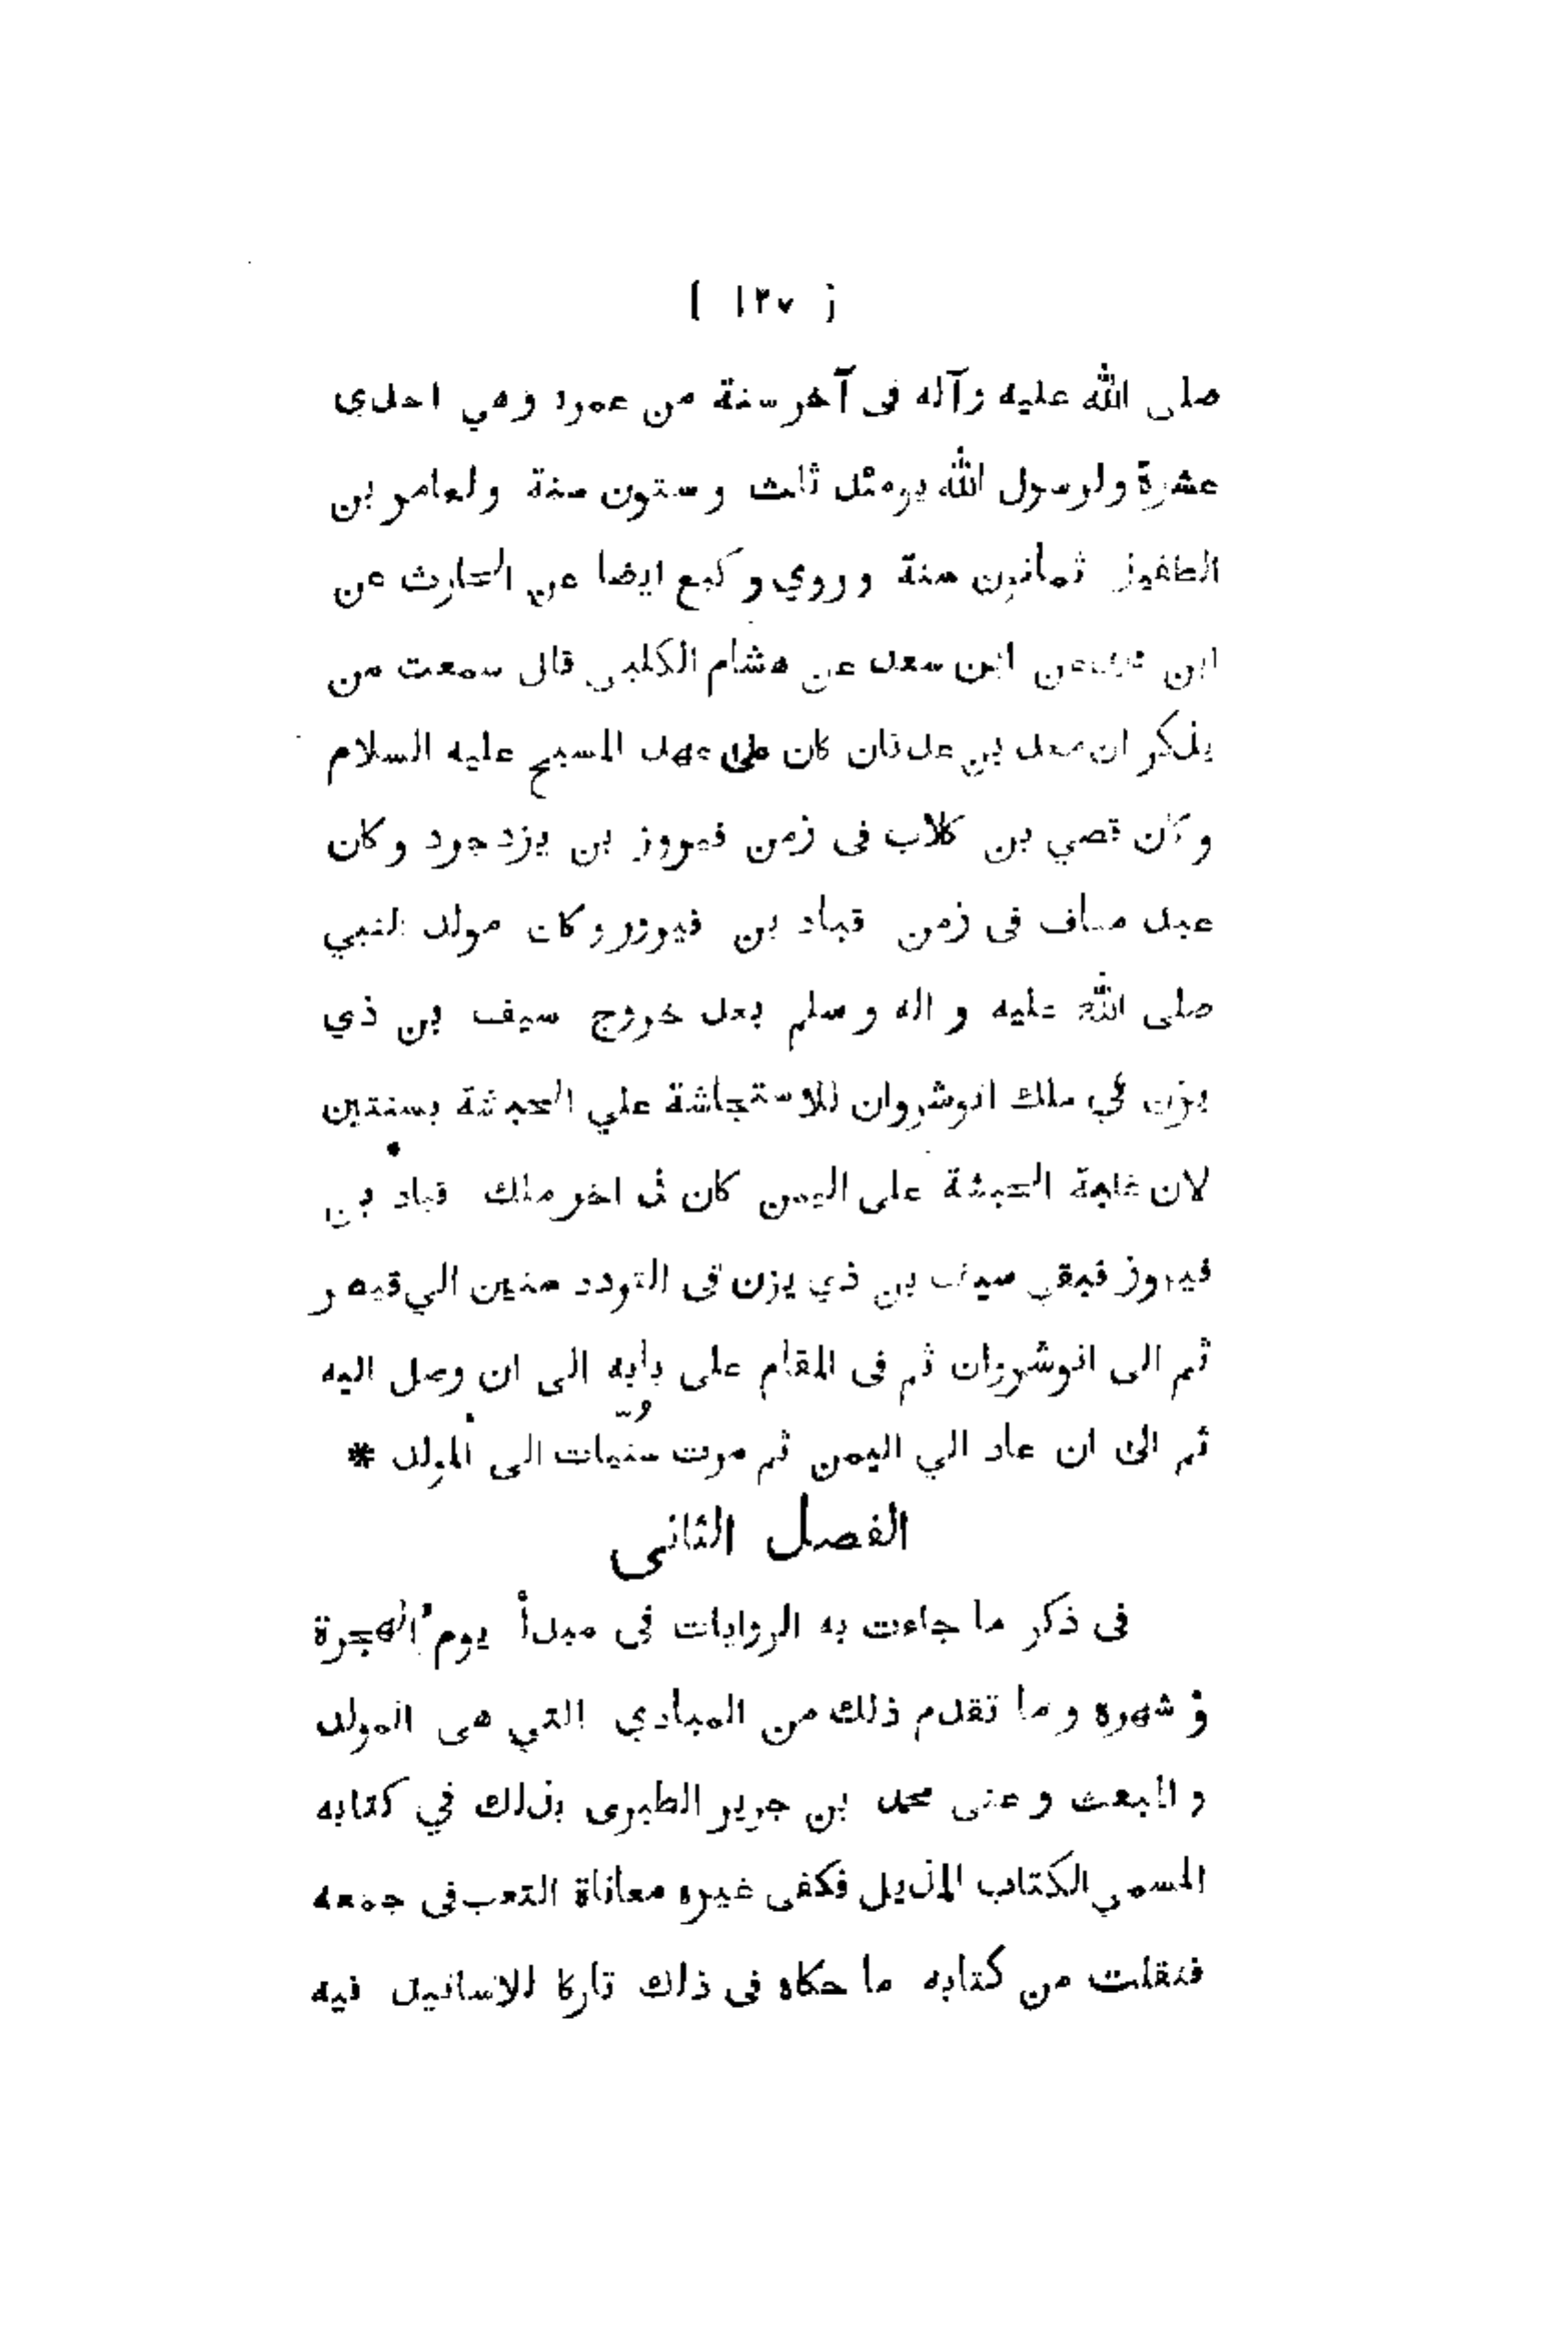 ( ١٢٧ )
صلى الله عليه وآله فى آخر سنة من عمره وهي احدى
عشرة ولرسول الله يومئذ ثلث وستون سنة ولعامر بن
الطفيل ثمانون سنة وروي وكيع ايضا عن الحارث عن
ابن سعد عن هشام الكلبى قال سمعت من
يذكر ان معد بن عدنان كان على عهد المسيح عليه السلام
وكان قصي بن كلاب فى زمن فيروز بن يزدجرد وكان
عبد مناف فى زمن قباد بن فيروز وكان مولد النبي
صلى الله عليه واله وسلم بعد خروج سيف بن ذي
يزن في ملك انوشروان للاستجاشة علي الحبشة بسنتين
لان غلبة الحبشة على اليمن كان فى اخر ملك قباد بن
فيروز فبقي سيف بن ذي يزن فى التردد سنين الي قيصر
ثم الى انوشروان ثم فى المقام على بابه الى ان وصل اليه
ثم الى ان عاد الي اليمن ثم مرت سُنيّات الى المولد *
الفصل الثانى
فى ذكر ما جاءت به الروايات فى مبدأ يوم الهجرة
و شهره وما تقدم ذلك من المبادي التي هى المولد
والمبعث وعنى محمد بن جرير الطبرى بذلك في كتابه
المسمي الكتاب المذيل فكفى غيره معاناة التعب فى جمعه
فنقلت من كتابه ما حكاه فى ذلك تاركا للاسانيد فيه